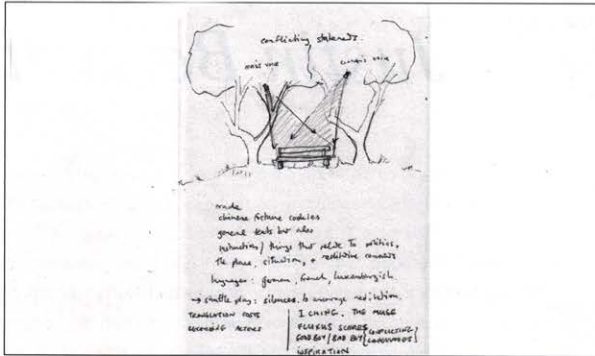 conflicting statements.
man's voice
woman's voice
made
chinese fortune cookies
general texts but also
instructions / things that relate to politics,
the place, situation, + repetitive commands
languages: german, french, luxembourgish.
→ shuttle play: silences. to encourage meditation.
TRANSLATION COSTS
ACTORS
I CHING. THE MUSE
FLUXUS SCORES
GOOD BOY / BAD BOY {CONFLICTING COMMANDS}
INSPIRATION